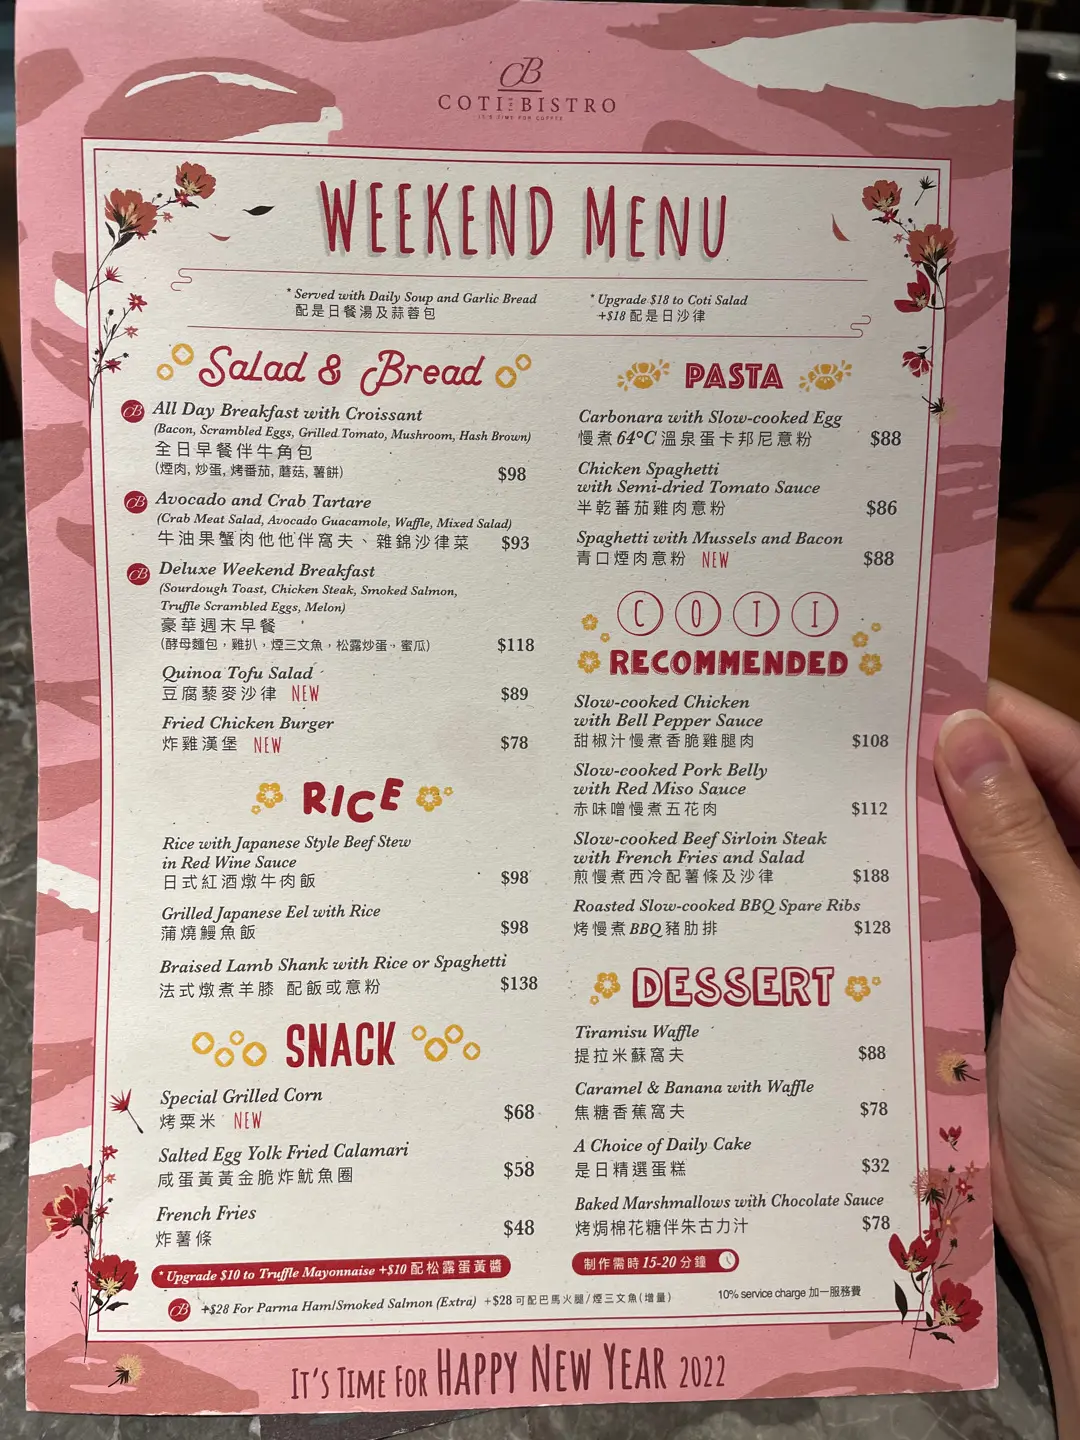 CB
COTI BISTRO
IT'S TIME FOR COFFEE
WEEKEND MENU
* Served with Daily Soup and Garlic Bread
配是日餐湯及蒜蓉包
* Upgrade $18 to Coti Salad
+$18 配是日沙律
Salad & Bread
CB All Day Breakfast with Croissant
(Bacon, Scrambled Eggs, Grilled Tomato, Mushroom, Hash Brown)
全日早餐伴牛角包
(煙肉, 炒蛋, 烤番茄, 蘑菇, 薯餅) $98
CB Avocado and Crab Tartare
(Crab Meat Salad, Avocado Guacamole, Waffle, Mixed Salad)
牛油果蟹肉他他伴窩夫、雜錦沙律菜 $93
CB Deluxe Weekend Breakfast
(Sourdough Toast, Chicken Steak, Smoked Salmon,
Truffle Scrambled Eggs, Melon)
豪華週末早餐
(酵母麵包，雞扒，煙三文魚，松露炒蛋，蜜瓜) $118
Quinoa Tofu Salad
豆腐藜麥沙律 NEW $89
Fried Chicken Burger
炸雞漢堡 NEW $78
RICE
Rice with Japanese Style Beef Stew
in Red Wine Sauce
日式紅酒燉牛肉飯 $98
Grilled Japanese Eel with Rice
蒲燒鰻魚飯 $98
Braised Lamb Shank with Rice or Spaghetti
法式燉煮羊膝 配飯或意粉 $138
SNACK
Special Grilled Corn
烤粟米 NEW $68
Salted Egg Yolk Fried Calamari
咸蛋黃黃金脆炸魷魚圈 $58
French Fries
炸薯條 $48
* Upgrade $10 to Truffle Mayonnaise +$10 配松露蛋黃醬
PASTA
Carbonara with Slow-cooked Egg
慢煮64°C溫泉蛋卡邦尼意粉 $88
Chicken Spaghetti
with Semi-dried Tomato Sauce
半乾蕃茄雞肉意粉 $86
Spaghetti with Mussels and Bacon
青口煙肉意粉 NEW $88
COTI
RECOMMENDED
Slow-cooked Chicken
with Bell Pepper Sauce
甜椒汁慢煮香脆雞腿肉 $108
Slow-cooked Pork Belly
with Red Miso Sauce
赤味噌慢煮五花肉 $112
Slow-cooked Beef Sirloin Steak
with French Fries and Salad
煎慢煮西冷配薯條及沙律 $188
Roasted Slow-cooked BBQ Spare Ribs
烤慢煮BBQ豬肋排 $128
DESSERT
Tiramisu Waffle
提拉米蘇窩夫 $88
Caramel & Banana with Waffle
焦糖香蕉窩夫 $78
A Choice of Daily Cake
是日精選蛋糕 $32
Baked Marshmallows with Chocolate Sauce
烤焗棉花糖伴朱古力汁 $78
制作需時15-20分鐘
CB +$28 For Parma Ham/Smoked Salmon (Extra) +$28可配巴馬火腿/煙三文魚(增量)
10% service charge 加一服務費
IT'S TIME FOR HAPPY NEW YEAR 2022